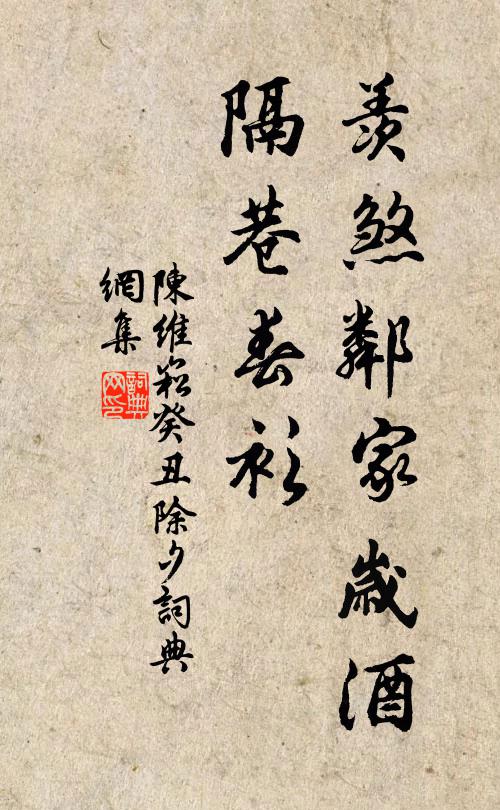 羨煞鄰家歲酒
隔巷春衫
陳維崧癸丑除夕詞典
網集
詞典
网印